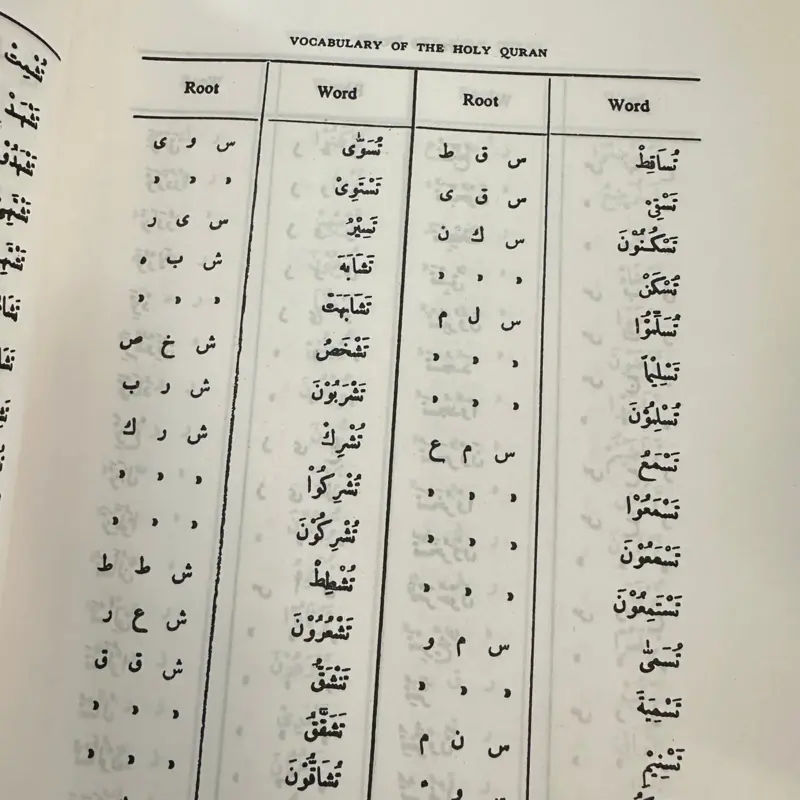 VOCABULARY OF THE HOLY QURAN
Root Word Root Word
تُسَاقِطْ س ق ط تُسَوّٰى س و ى
تَسْقِىْ س ق ى تَسْتَوِىْ " " "
تَسْكُنُوْنَ س ك ن تَسِيْرُ س ى ر
تُسْكَنْ " " " تَشَابَهَ ش ب ه
تُسَلِّمُوْا س ل م تَشَابَهَتْ " " "
تَسْلِيْماً " " " تَشْخَصُ ش خ ص
تُسْلِمُوْنَ " " " تَشْرَبُوْنَ ش ر ب
تَسْمَعُ س م ع تُشْرِكْ ش ر ك
تَسْمَعُوْا " " " تُشْرِكُوْا " " "
تَسْمَعُوْنَ " " " تُشْرِكُوْنَ " " "
تَسْتَمِعُوْنَ " " " تُشْطِطْ ش ط ط
تُسَمّٰى س م و تَشْعُرُوْنَ ش ع ر
تَسْمِيَةَ " " " تَنْشَقُّ ش ق ق
تَسْنِيْمٍ س ن م تَشَقَّقُ " " "
تُشَاقُّوْنَ " " "